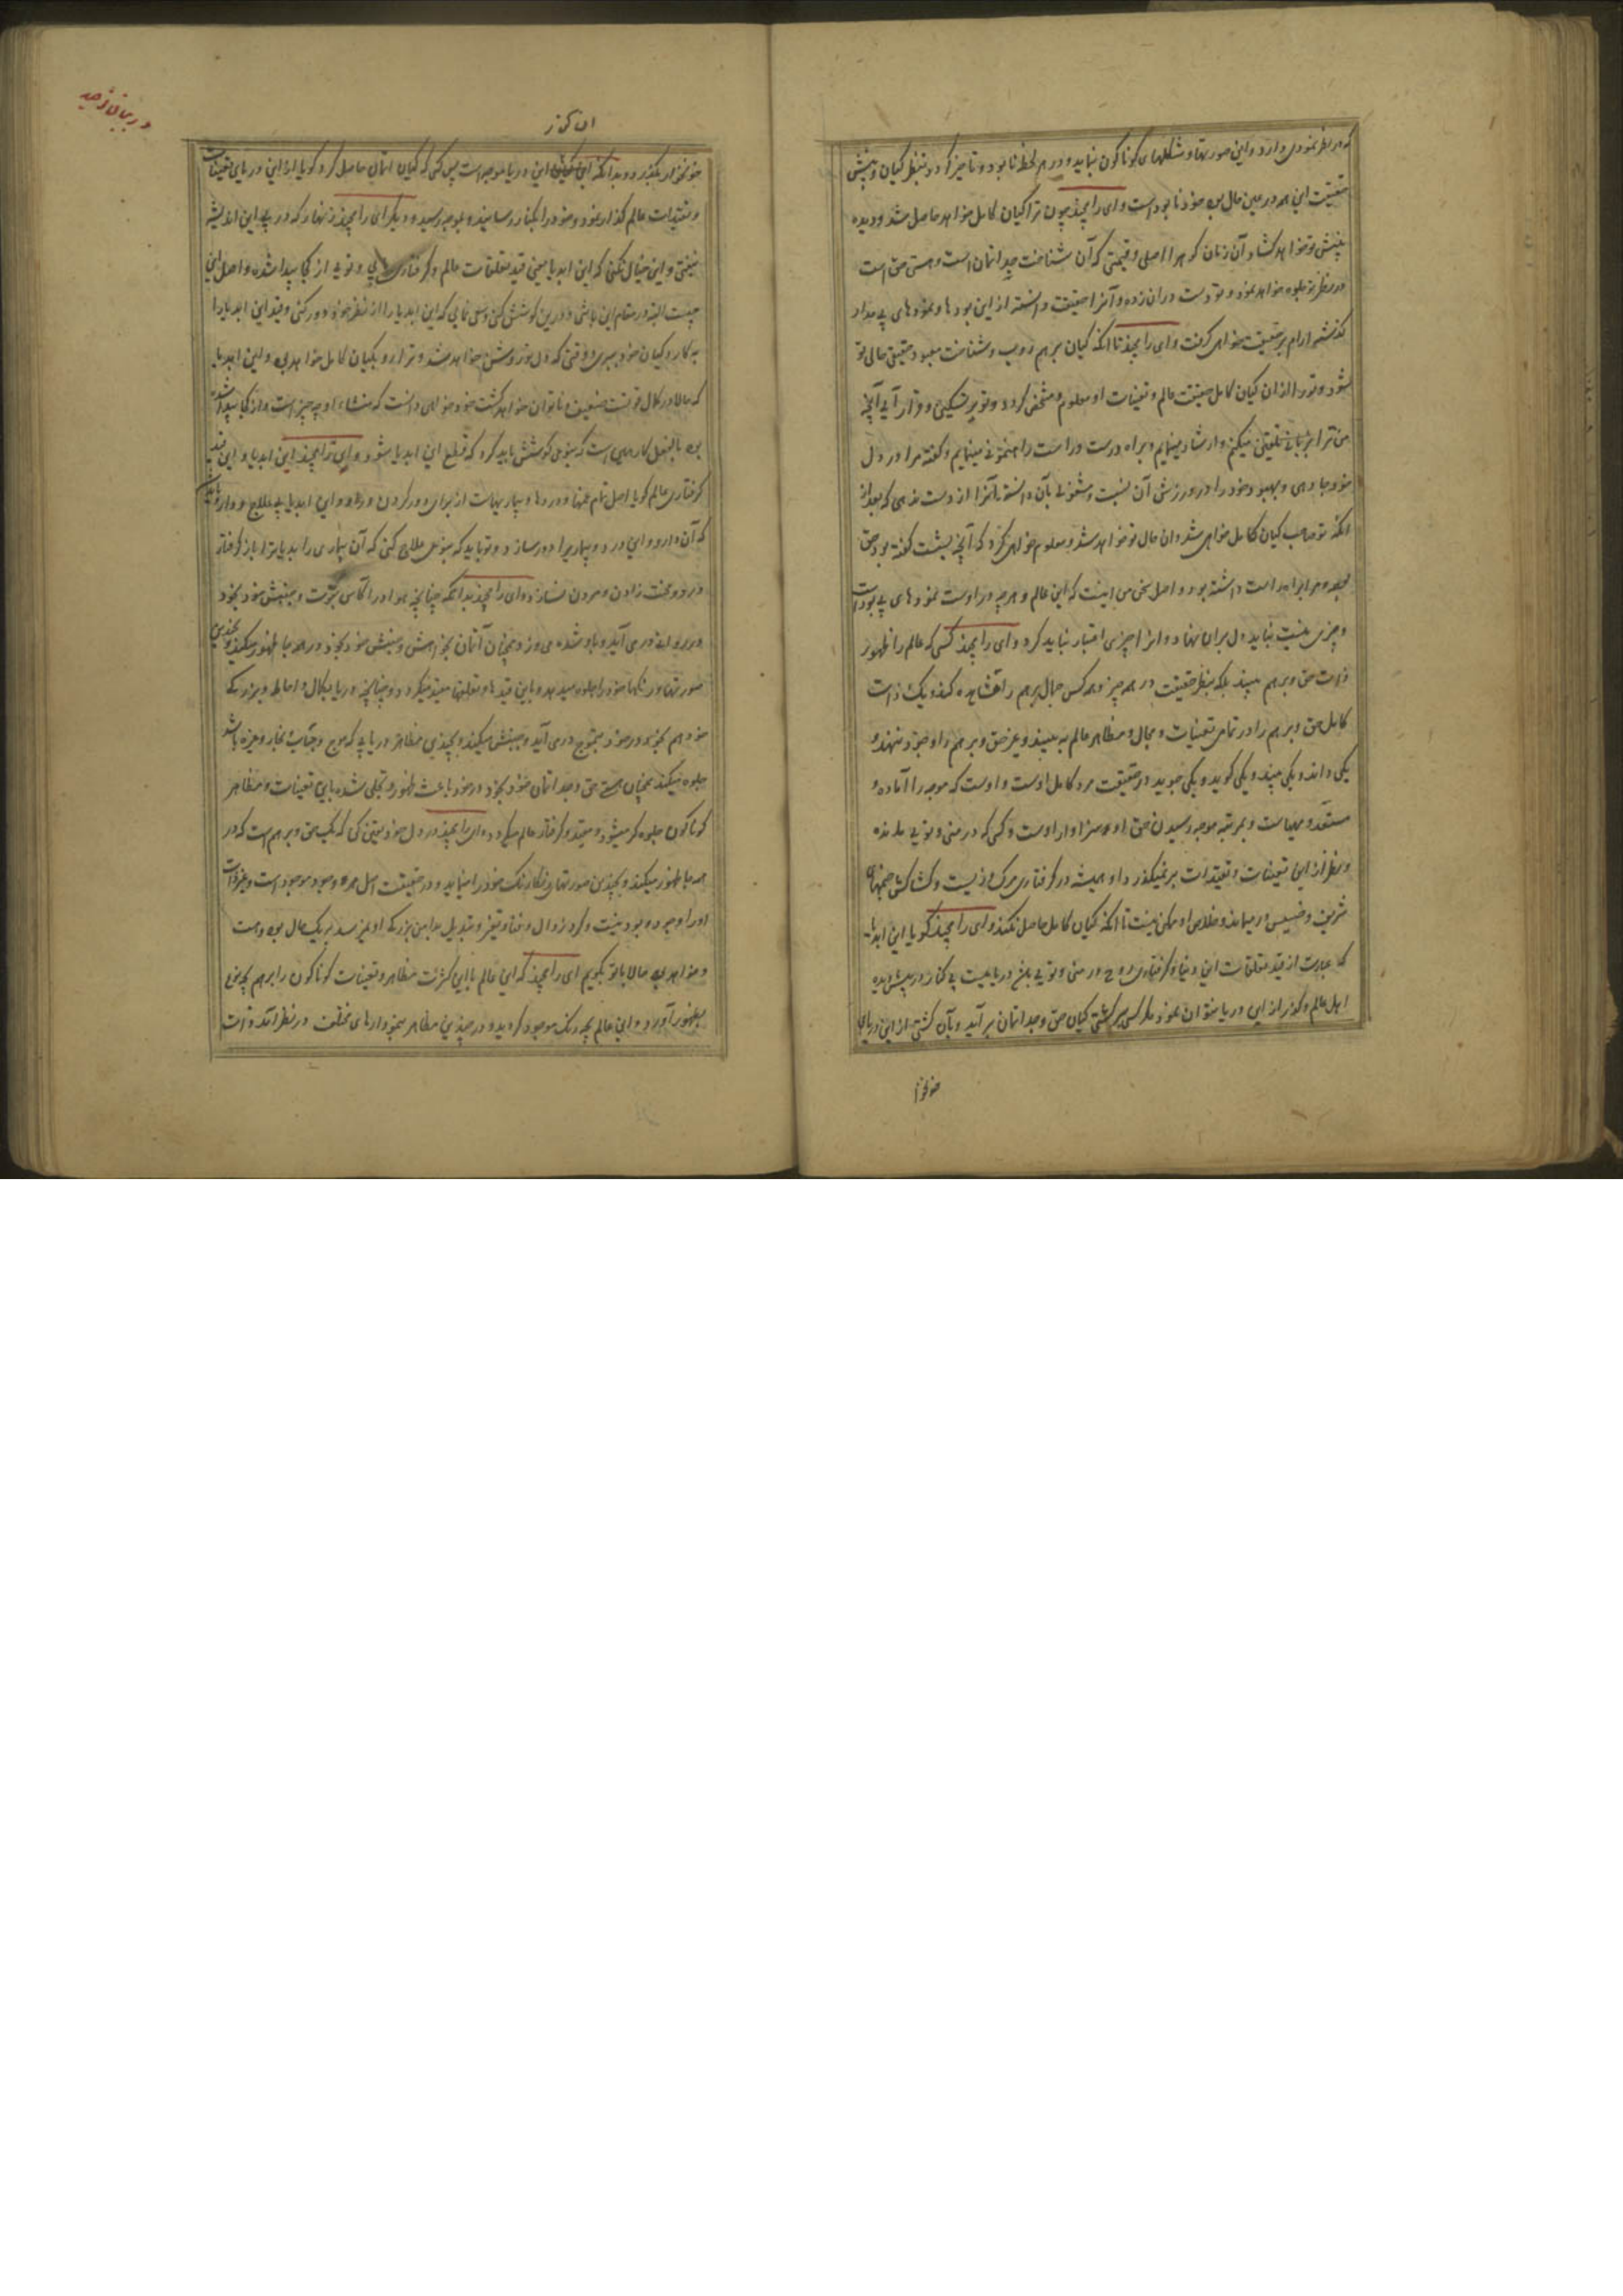 که هر نظر نمودی دارد و این صورتها و شکلهای کوناکون نماید و در هر لحظه نابود و ناچیز کردد و بنظر کیان و بینش
حقیقت این همه در عین حال بوده خود نابود است و ای رامچند چون ترا کیان کامل خواهد حاصل شد و دیده
بینش تو خواهد کشاد آن زمان کوهر اصلی و قیمتی که آن شناخت چدانمان است و هستی حق است
در نظر تو جلوه خواهد نمود و تو دست دران زده و آنرا حقیقت دانسته از این بودها و نمودهای بی مدار
کذشته آرام بر حقیقت خواهی کرفت و ای رامچند تا آنکه کیان برهم روپ و شناخت معبود حقیقی حالی تو
شود و تو را از ان کیان کامل حقیقت عالم و تعینات او معلوم و مشخص کردد و تو بر تسکین و قرار آیی آنچه
من ترا بزبانی تلقین میکنم و ارشاد مینمایم و براه درست و راست راهنمونی مینمایم و کفته مرا در دل
خود جا دهی و بهبود خود را در ورزش آن نسبت و شغولی بآن دانسته آنرا از دست ندهی که بعد از
آنکه تو صاحب کیان کامل خواهی شد و ان حال تو خواهد شد و معلوم خواهی کرد که آنچه بشست کفته بود حق
بوده و برابر است داشته بود و اصل سخن من اینست که این عالم و هر چه در اوست نمودهای بی بود است
و چیزی نیست نباید دل بران نهاد و انرا چیزی اعتبار نباید کرد و ای رامچند کسی که عالم را ظهور
ذات حق و برهم بیند بلکه بنظر حقیقت در همه چیز و همه کس جمال برهم را مشاهده کند و یک ذات
کامل حق و برهم را در تمامی تعینات و مجال و مظاهر عالم به بیند و غیر حق و برهم را وجود ننهد و
یکی داند و یکی بیند و یکی کوید و یکی جوید در حقیقت مرد کامل اوست و اوست که موجه را آماده و
مستعد و مهیاست و بمرتبه موجه رسیدن حق او و سزاوار اوست و کسی که در منی و تویی مانده
و نظر از این تعینات و تقیدات بر نمیکذرد او همیشه در کرفتاری مرک و زیست و کشاکش جنمهای
شریف و خسیس در میماند و خلاصی او ممکن نیست تا آنکه کیان کامل حاصل نکند و ای رامچند کویا این ابدیا
که عبارت از قید تعلقات این دنیا و کرفتاری روح در منی و تویی باشد دریاییست بی کنار در پیش دیده
اهل عالم و کذر از این دریا نتوان نمود مکر کسی بر کشتی کیان حق وجدانمان بر آید و بآن کشتی از این دریای
خونخوار
ان کذر
در بیان توحید
خونخوار بکذرد و بدانکه این کیان این دریا موجه است پس کسی که کیان آتمان حاصل کرد کویا او از این دریای تعینات
و تقیدات عالم کذار نمود و خود را بکنار رسانید و بموجه رسید و دیکر ای رامچند زنهار که در پی این اندیشه
نیفتی و این خیال نکنی که این ابدیا یعنی قید تعلقات عالم و کرفتاری منی و تویی از کجا پیدا شده و اصل این
چیست البته در مقام این باشی و در این کوشش کنی و سعی نمایی که این ابدیا را از نظر خود دور کنی و قید این ابدیا را
به کارد کیان خود ببری و وقتی که دل تو روشن خواهد شد و ترا رو بکیان کامل خواهد بود و این ابدیا
که حالا در کمال قوتست ضعیف و ناتوان خواهد کشت خود خواهی دانست که منشاء او چه چیز است و از کجا پیدا شده
بوده بالفعل کار همین است که بنوعی کوشش باید کرد که قطع این ابدیا شود و ای رامچند این ابدیا و این قید
کرفتاری عالم کویا اصل تمام غمها و دردها و بیماریهاست از برای دور کردن درد و این ابدیا بی علاج و دارو باید
که آن دارو این درد و بیماریرا دور سازد و تو باید که بنوعی علاج کنی که آن بیماری را ابدیا ترا باز کرفتار
درد و محنت زادن و مردن نسازد و ای رامچند بدانکه چنانچه هوا در آکاس بقوت و جنبش خود بخود
در رو اندر می آید و باد شده می وزد همچنان آتمان بخواهش و جنبش خود بخود در همه جا ظهور میکند و بچندین
صورتها و رنکها خود را جلوه میدهد و باین قیدها و تعلقها مقید میکردد و چنانچه دریا بکمال و احاطه و بزرکی
خود هم بخود در خود بتموج درمی آید و جنبش میکند و بچندین مظاهر دریایی که موج و حباب و بخار و غیره باشد
جلوه میکند همچنان هستی حق وجدانمان خود بخود در خود باعث ظهور و تجلی شده باین تعینات و مظاهر
کوناکون جلوه کر میشود و مقید و کرفتار عالم میکردد و ای رامچند در دل خود یقین کن که یک حق و برهم است که در
همه جا ظهور میکند و بچندین صورتهای رنکارنک خود را مینماید و در حقیقت اصل همه و موجود است و غیر ذات
او را وجود و بود نیست و کرد زوال و فنا و تغیر و تبدیل بدامن بزرکی او نمیرسد بر یک حال بوده و هست
و خواهد بود حالا با تو بکویم ای رامچند که این عالم با این کثرت مظاهر و تعینات کوناکون را برهم بچه نوع
بظهور آورد و این عالم بچه رنک موجود کردید و در چندین مظاهر بنمودارهای مختلف در نظر آمد ذات